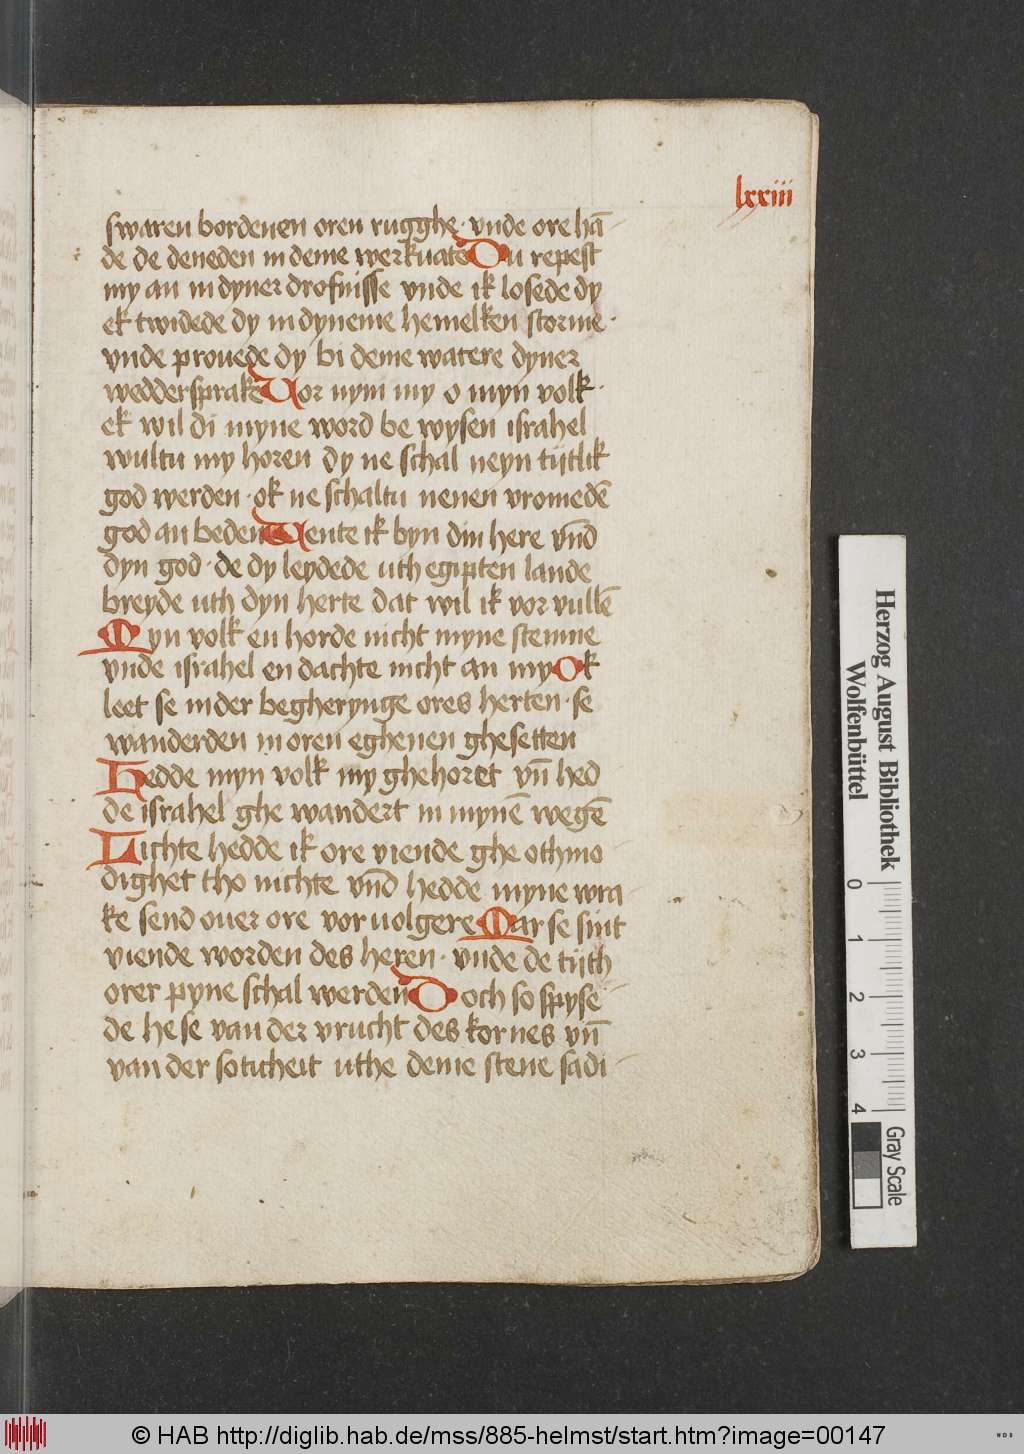 lxxiii
swaren bordenen oren rugghe · vnde ore hā
de de deneden in deme werkuate Du repest
my an in dyner drofnisse vnde ik losede dy
ek twidede dy in dyneme hemelken storme ·
vnde prouede dy bi deme watere dyner
weddersprake Vor nym my o myn volk ·
ek wil di myne word be wysen israhel
wultu my horen dy ne schal neyn tijtlik
god werden · ok ne schaltu nenen vromedē
god an beden Wente ik byn din here vn̄d
dyn god · de dy leydede uth egipten lande
breyde uth dyn herte dat wil ik vor vullē
Myn volk en horde nicht myne stemne
vnde israhel en dachte nicht an my Ok
leet se in der begherynge ores herten · se
wanderden in oren eghenen ghesetten
Hedde myn volk my ghehoret vn̄ hed
de israhel ghe wandert in mynē wegē
Lichte hedde ik ore viende ghe othmo
dighet tho nichte vn̄d hedde myne wra
ke send ouer ore vor uolgere Mar se sint
viende worden des heren · vnde de tijth
orer pyne schal werden Doch so spyse
de he se van der vrucht des kornes vn̄
van der soticheit uthe deme stene sadi
Herzog August Bibliothek
Wolfenbüttel
0 1 2 3 4
Gray Scale
© HAB http://diglib.hab.de/mss/885-helmst/start.htm?image=00147